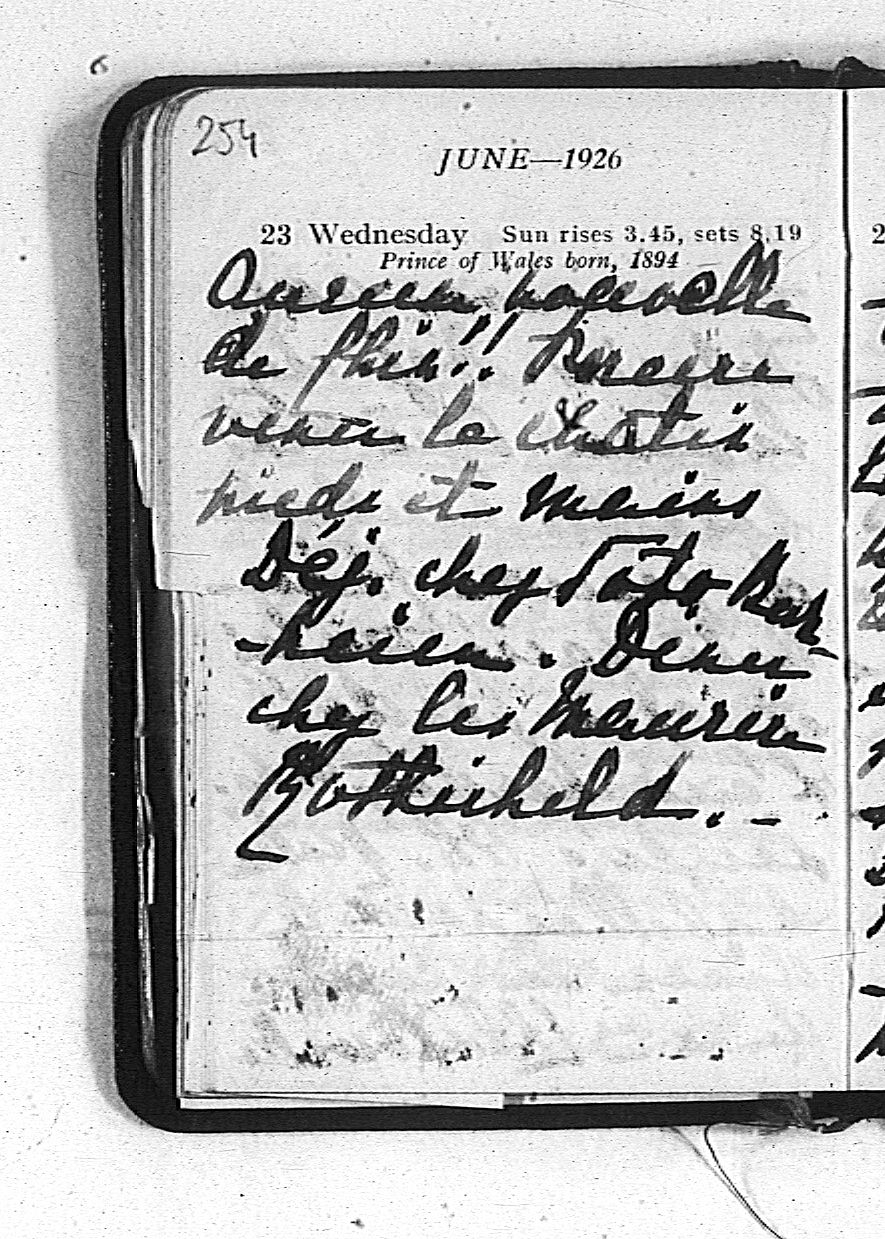 6
254
JUNE—1926
23 Wednesday Sun rises 3.45, sets 8.19
Prince of Wales born, 1894
Aucune nouvelle
de !!
venu le matin
pieds et mains
Déj. chez Toto
Diner
chez les Maurice
Rothschild. -